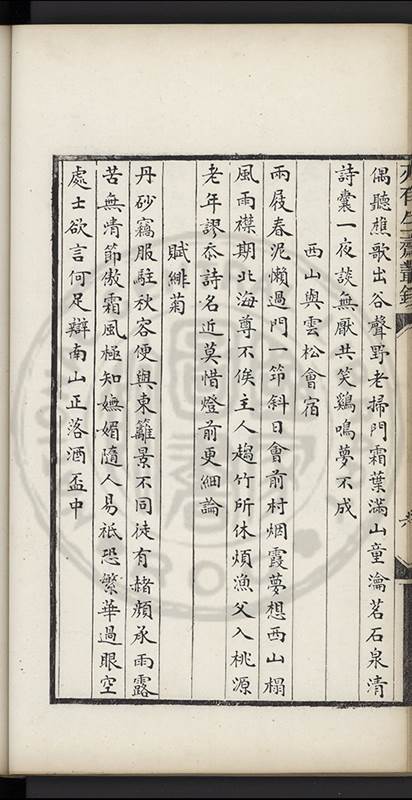 偶聽樵歌出谷聲野老掃門霜葉滿山童瀹茗石泉清
詩囊一夜談無厭共笑鷄鳴夢不成
西山與雲松會宿
雨屐春泥懶過門一筇斜日會前村烟霞夢想西山榻
風雨襟期北海尊不俟主人趨竹所休煩漁父入桃源
老年謬忝詩名近莫惜燈前更細論
賦緋菊
丹砂竊服駐秋容便與東籬景不同徒有赭頰承雨露
苦無情節傲霜風極知嫵媚隨人易祗恐繁華過眼空
處士欲言何足辯南山正落酒盃中